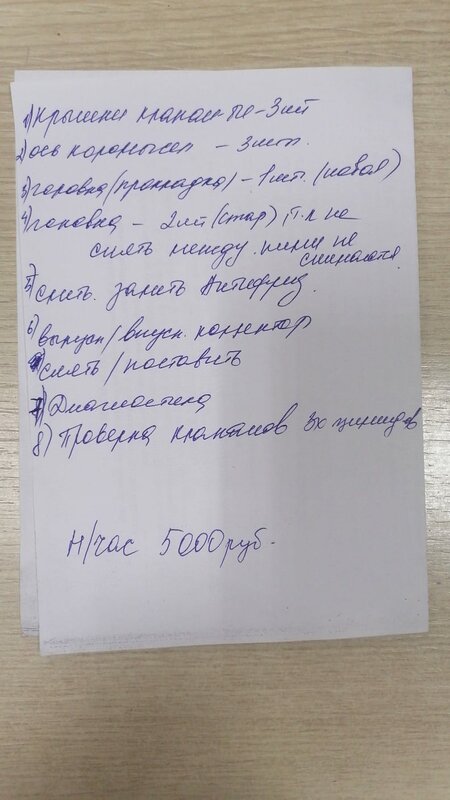 1) Крышки клапан-ые - 3шт
2) ось коромысел - 3шт.
3) головка (прокладка) - 1шт. (новая)
4) головка - 2шт (стар), т.к не
снять между ними не
5) слить. залить Антифриз
6) выпуск/впускн. коллектор
снять / поставить
7) Диагностика
8) Проверка клапанов 3х цилиндров
Н/час 5000 руб.